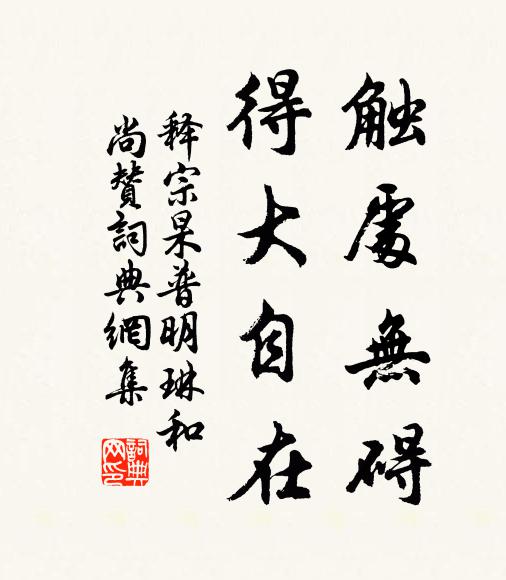 触處無碍
得大自在
释宗杲普明琳和
尚赞詞典網集
詞典網印